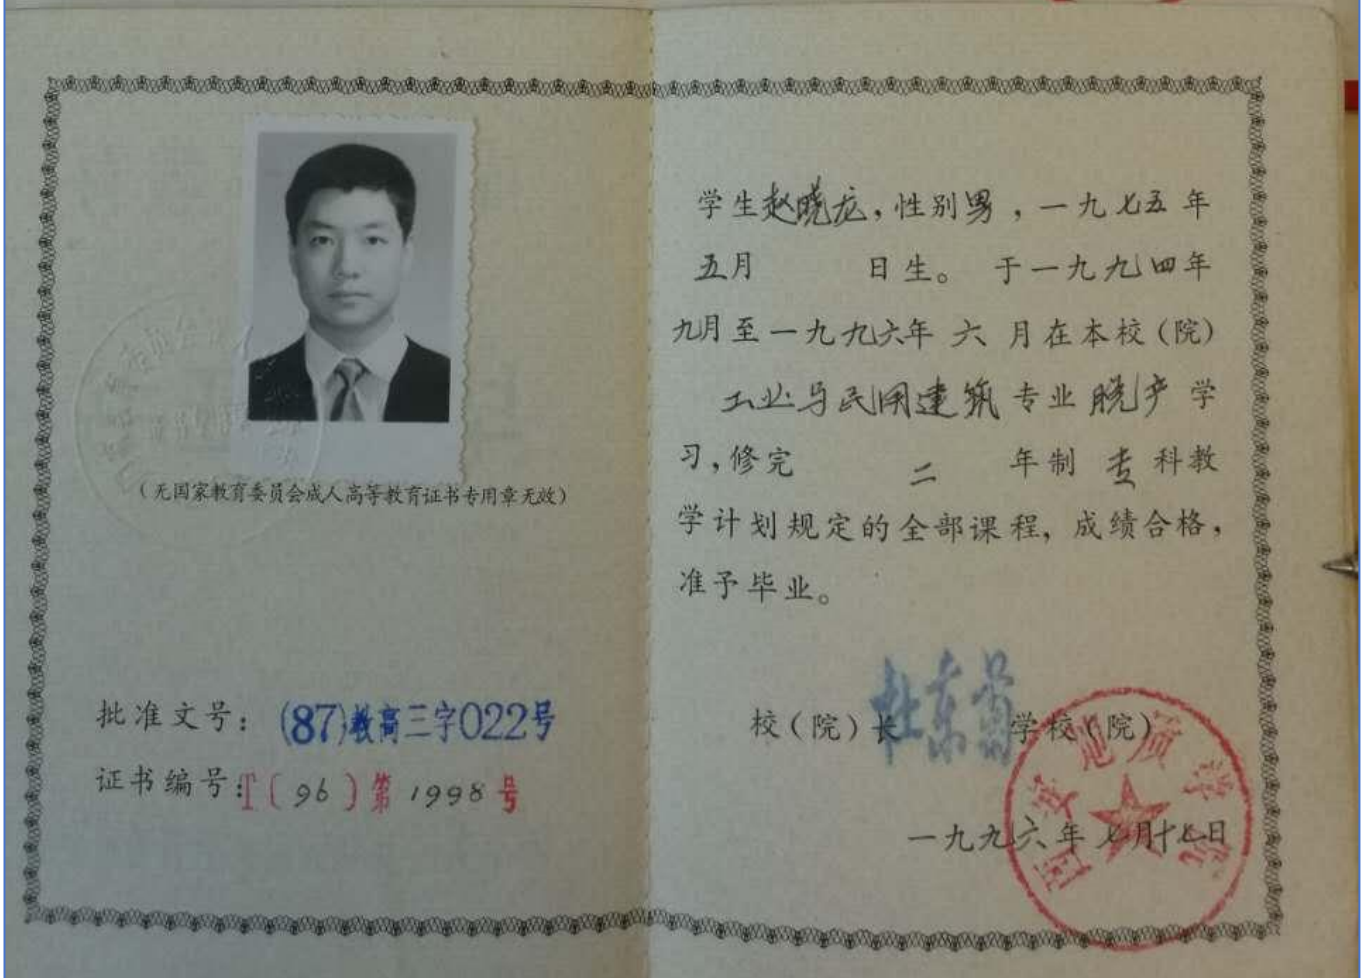 (无国家教育委员会成人高等教育证书专用章无效)
批准文号: (87)教高三字022号
证书编号: T〔96〕第1998号
学生赵晓龙,性别男,一九七五年
五月 日生。 于一九九四年
九月至一九九六年 六 月在本校(院)
工业与民用建筑专业脱产学
习,修完 二 年制 专 科教
学计划规定的全部课程,成绩合格,
准予毕业。
校(院)长 学校(院)
一九九六年七月十七日
地质学院